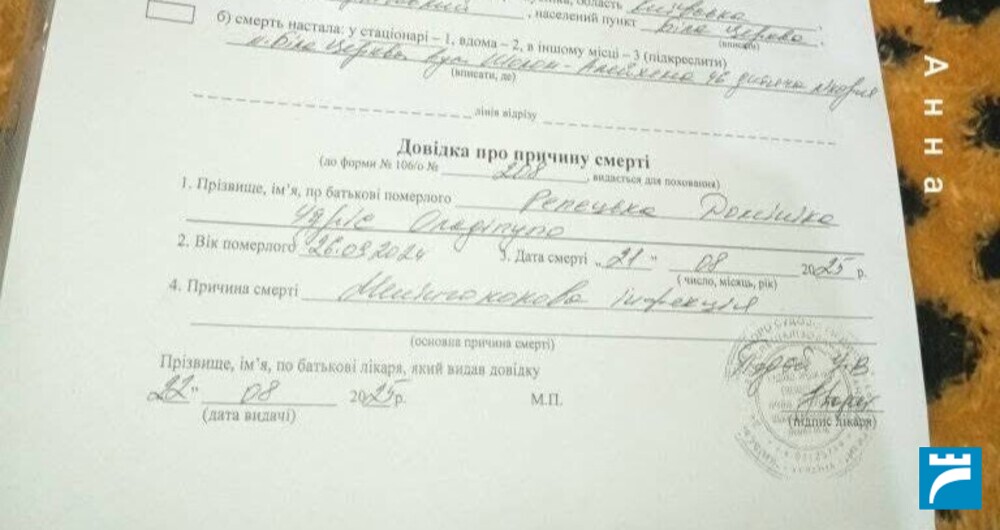 , населений пункт Біла Церква ,
(вписати)
б) смерть настала: у стаціонарі – 1, вдома – 2, в іншому місці – 3 (підкреслити)
м. Біла Церква вул. Шолом-Алейхема 46 дитяча лікарня
(вписати, де)
лінія відрізу
Довідка про причину смерті
(до форми № 106/о № 208 , видається для поховання)
1. Прізвище, ім’я, по батькові померлого Репецька Домініка
2. Вік померлого 26.09.2024 3. Дата смерті „ 21 " 08 2025 р.
( число, місяць, рік)
4. Причина смерті Менінгококова інфекція
(основна причина смерті)
Прізвище, ім’я, по батькові лікаря, який видав довідку
22 " 08 2025 р. М.П.
(дата видачі) (підпис лікаря)
Анна